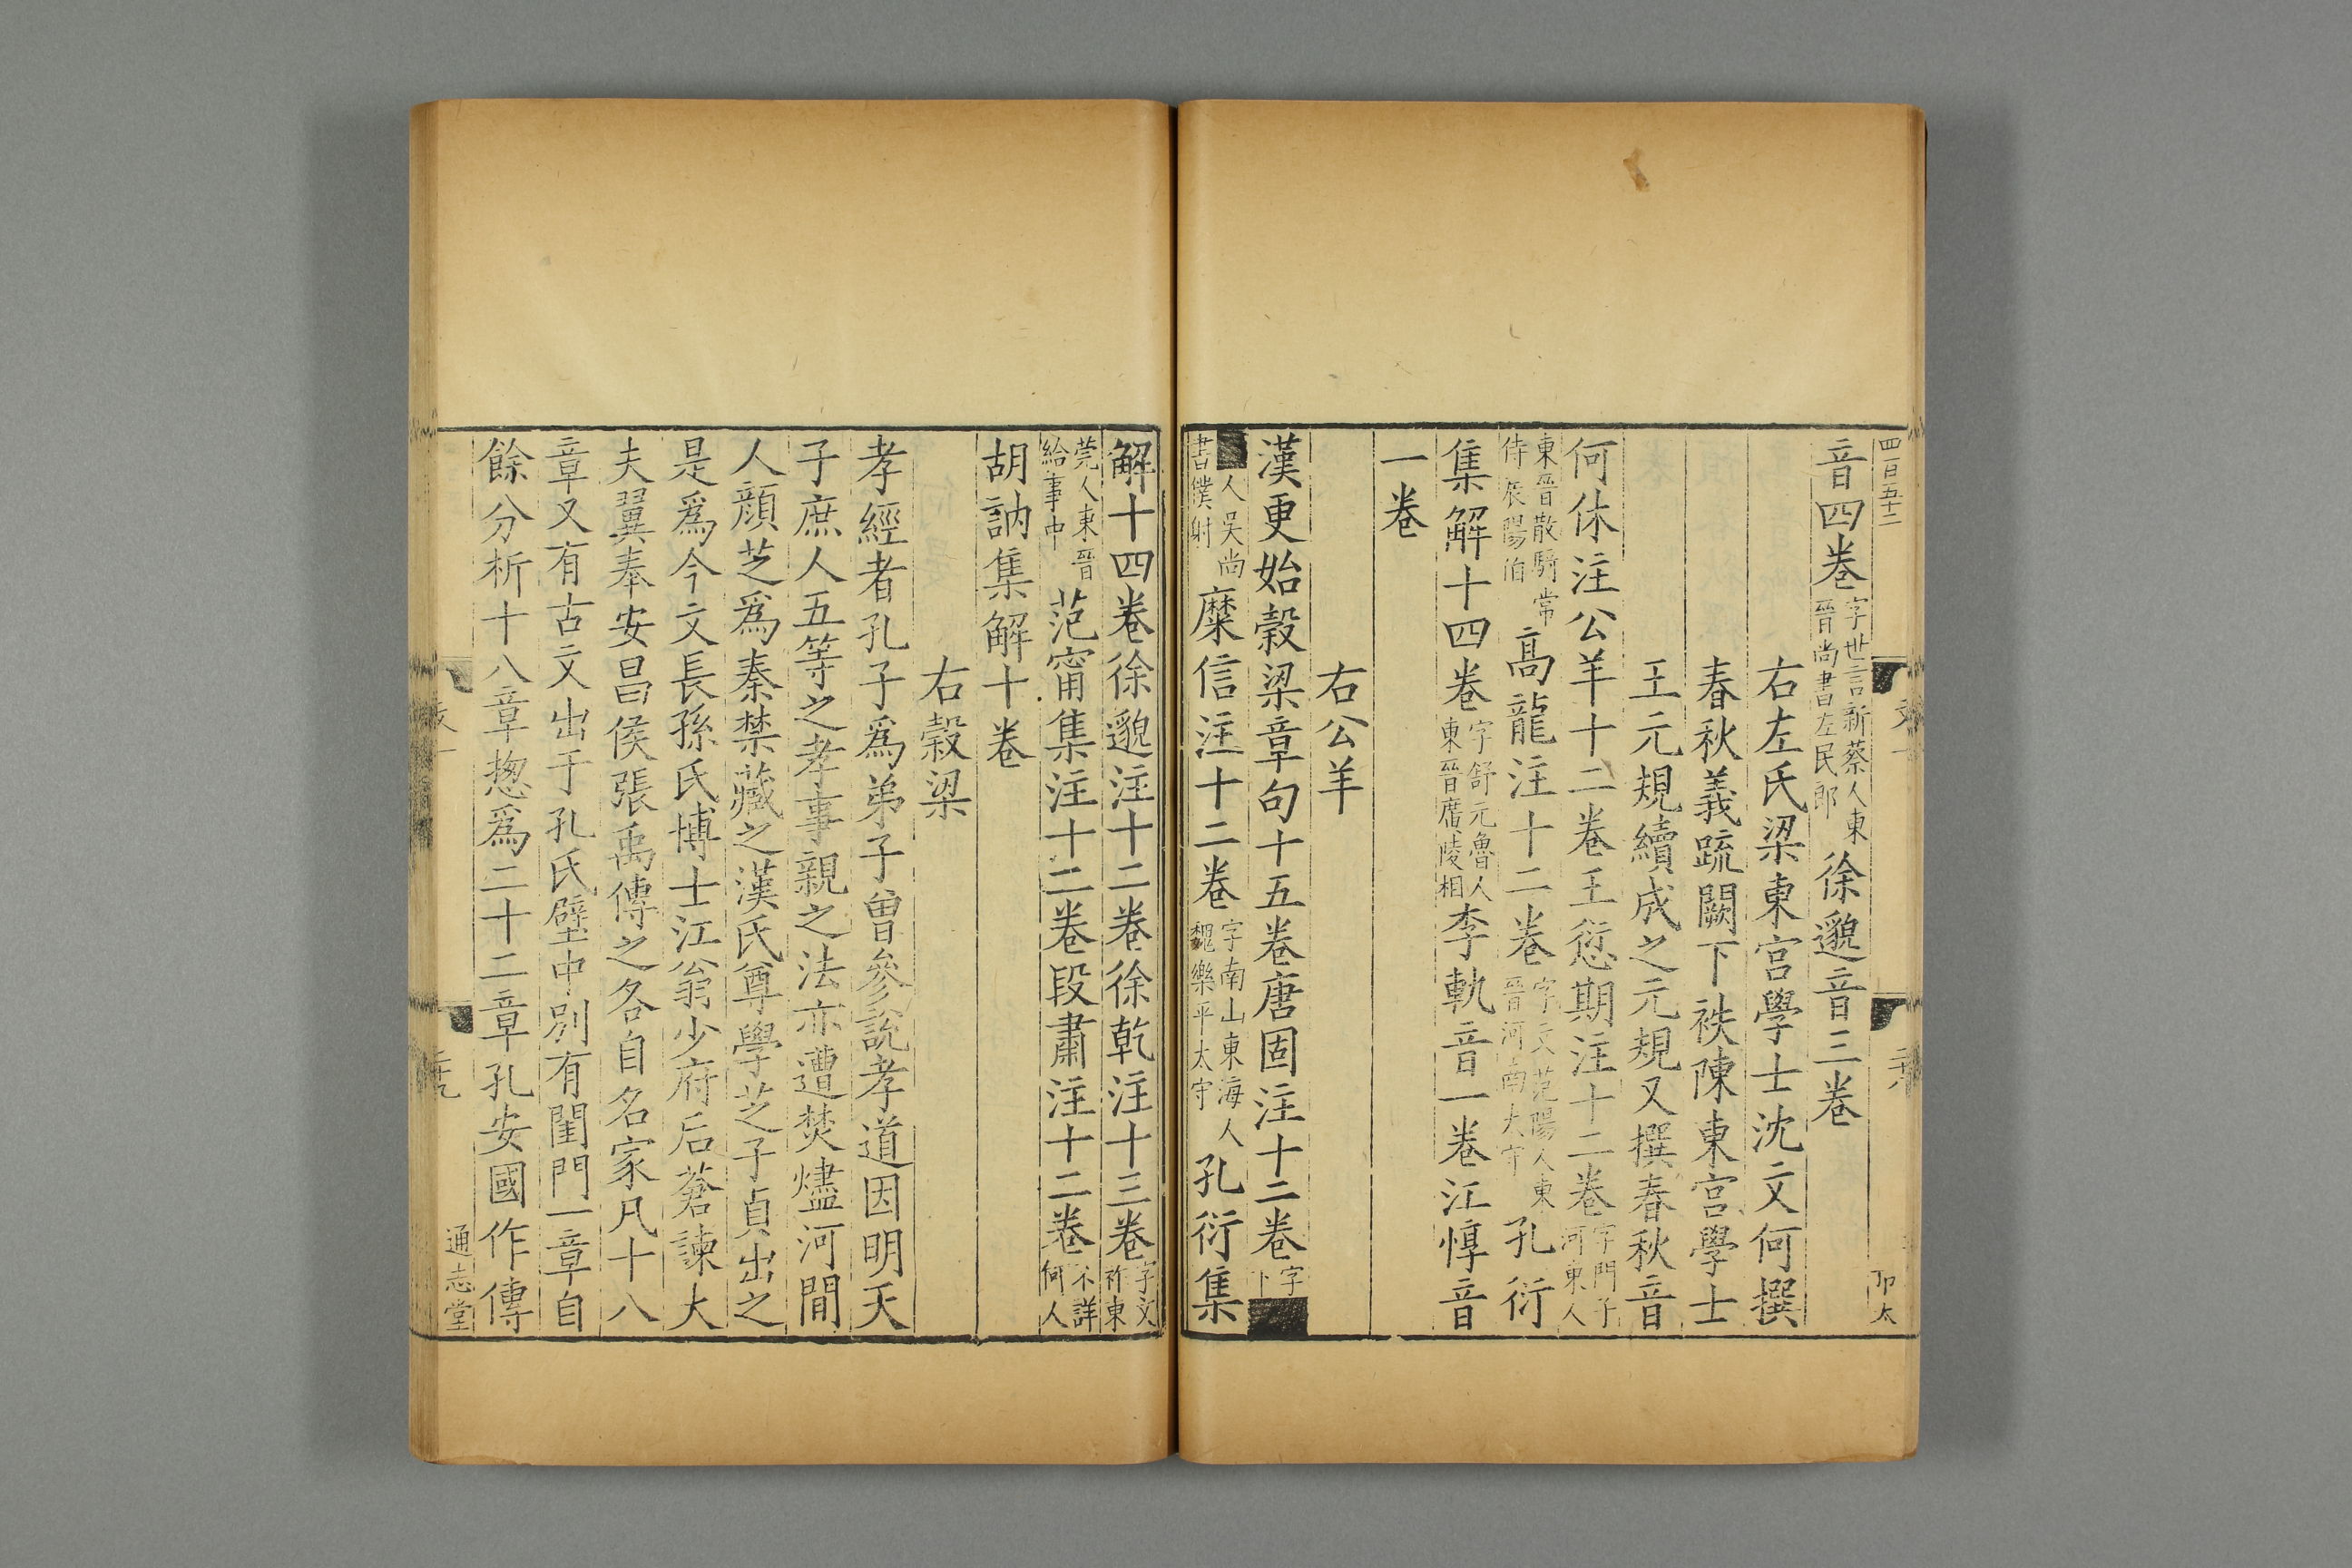 四百五十二
音四卷字世言新蔡人東晉尚書左民郎徐邈音三卷
右左氏梁東宮學士沈文何撰
春秋義疏闕下袟陳東宮學士
王元規續成之元規又撰春秋音
何休注公羊十二卷王愆期注十二卷字門子河東人
東晉散騎常侍辰陽伯高龍注十二卷字文范陽人東晉河南大守孔衍
集解十四卷字舒元魯人東晉廣陵相李軌音一卷江惇音
一卷
右公羊
漢更始穀梁章句十五卷唐固注十二卷字
人吳尚書僕射麋信注十二卷字南山東海人魏樂平太守孔衍集
解十四卷徐邈注十二卷徐乾注十三卷字文祚東
莞人東晉給事中范甯集注十二卷段肅注十二卷不詳何人
胡訥集解十卷
右穀梁
孝經者孔子爲弟子曾參說孝道因明天
子庶人五等之孝事親之法亦遭焚燼河閒
人顏芝爲秦禁藏之漢氏尊學芝子貞出之
是爲今文長孫氏博士江翁少府后蒼諫大
夫翼奉安昌侯張禹傳之各自名家凡十八
章又有古文出于孔氏壁中別有閨門一章自
餘分析十八章揔爲二十二章孔安國作傳
通志堂